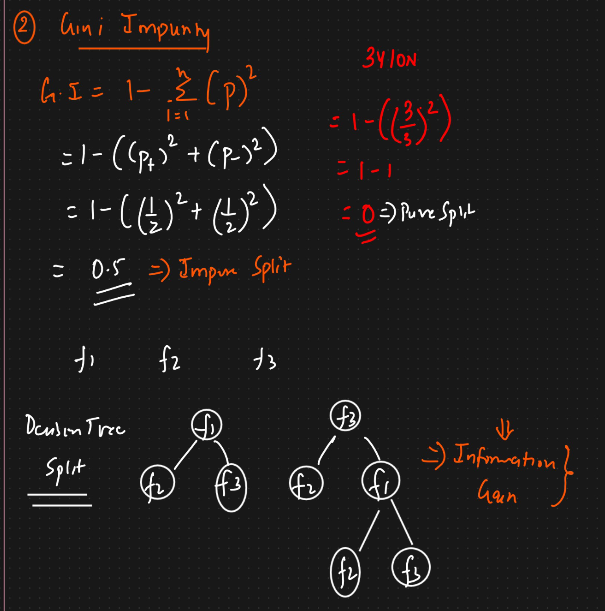 ② Gini Impurity
G.I = 1 - Σ (p)²
n
i=1
= 1 - ((p+)² + (p-)²)
= 1 - ((1/2)² + (1/2)²)
= 0.5 ⇒ Impure Split
3Y|0N
= 1 - ((3/3)²)
= 1 - 1
= 0 ⇒ Pure Split
f1 f2 f3
Decision Tree
Split
f1
f2 f3
f3
f2 f1
f2 f3
⇓
⇒ Information }
Gain